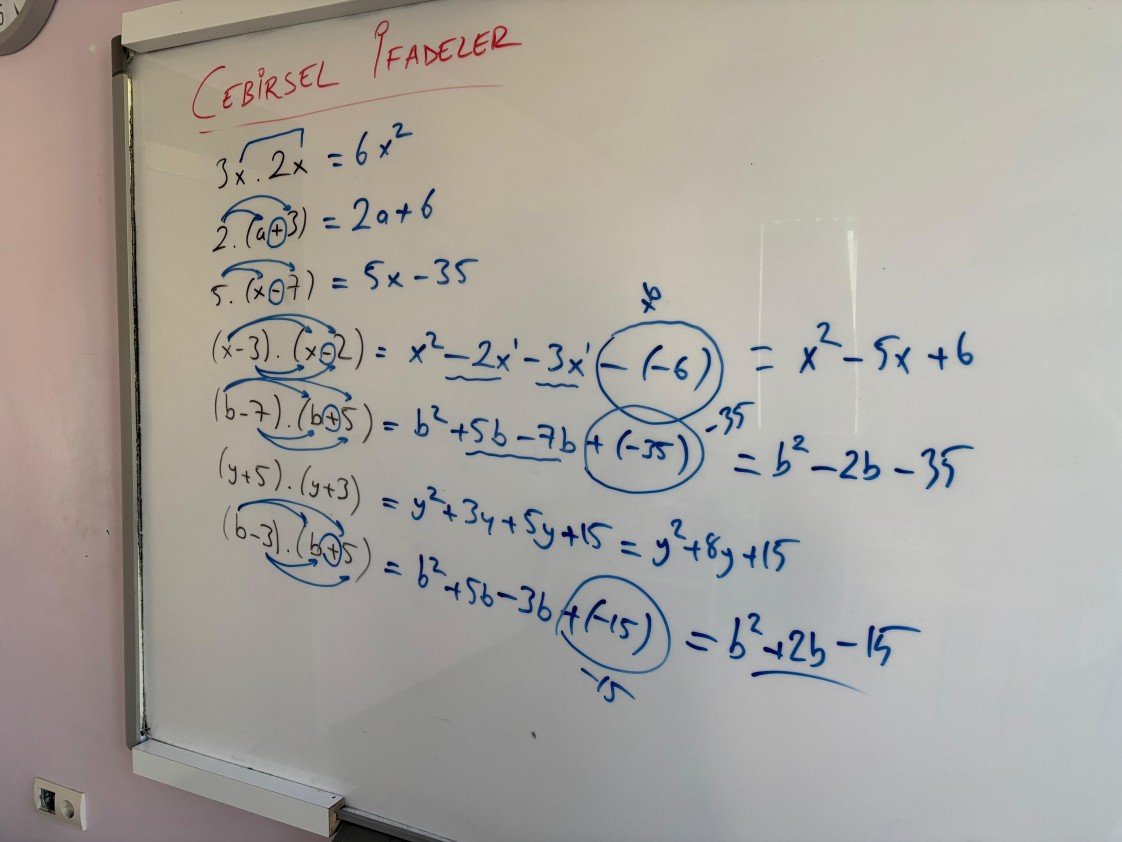 CEBİRSEL İFADELER
3x . 2x = 6x²
2. (a+3) = 2a+6
5. (x-7) = 5x-35
+6
(x-3) . (x-2) = x² - 2x¹ - 3x¹ - (-6) = x² - 5x + 6
(b-7) . (b+5) = b² + 5b - 7b + (-35) -35 = b² - 2b - 35
(y+5) . (y+3) = y² + 3y + 5y + 15 = y² + 8y + 15
(b-3) . (b+5) = b² + 5b - 3b + (-15) = b² + 2b - 15
-15